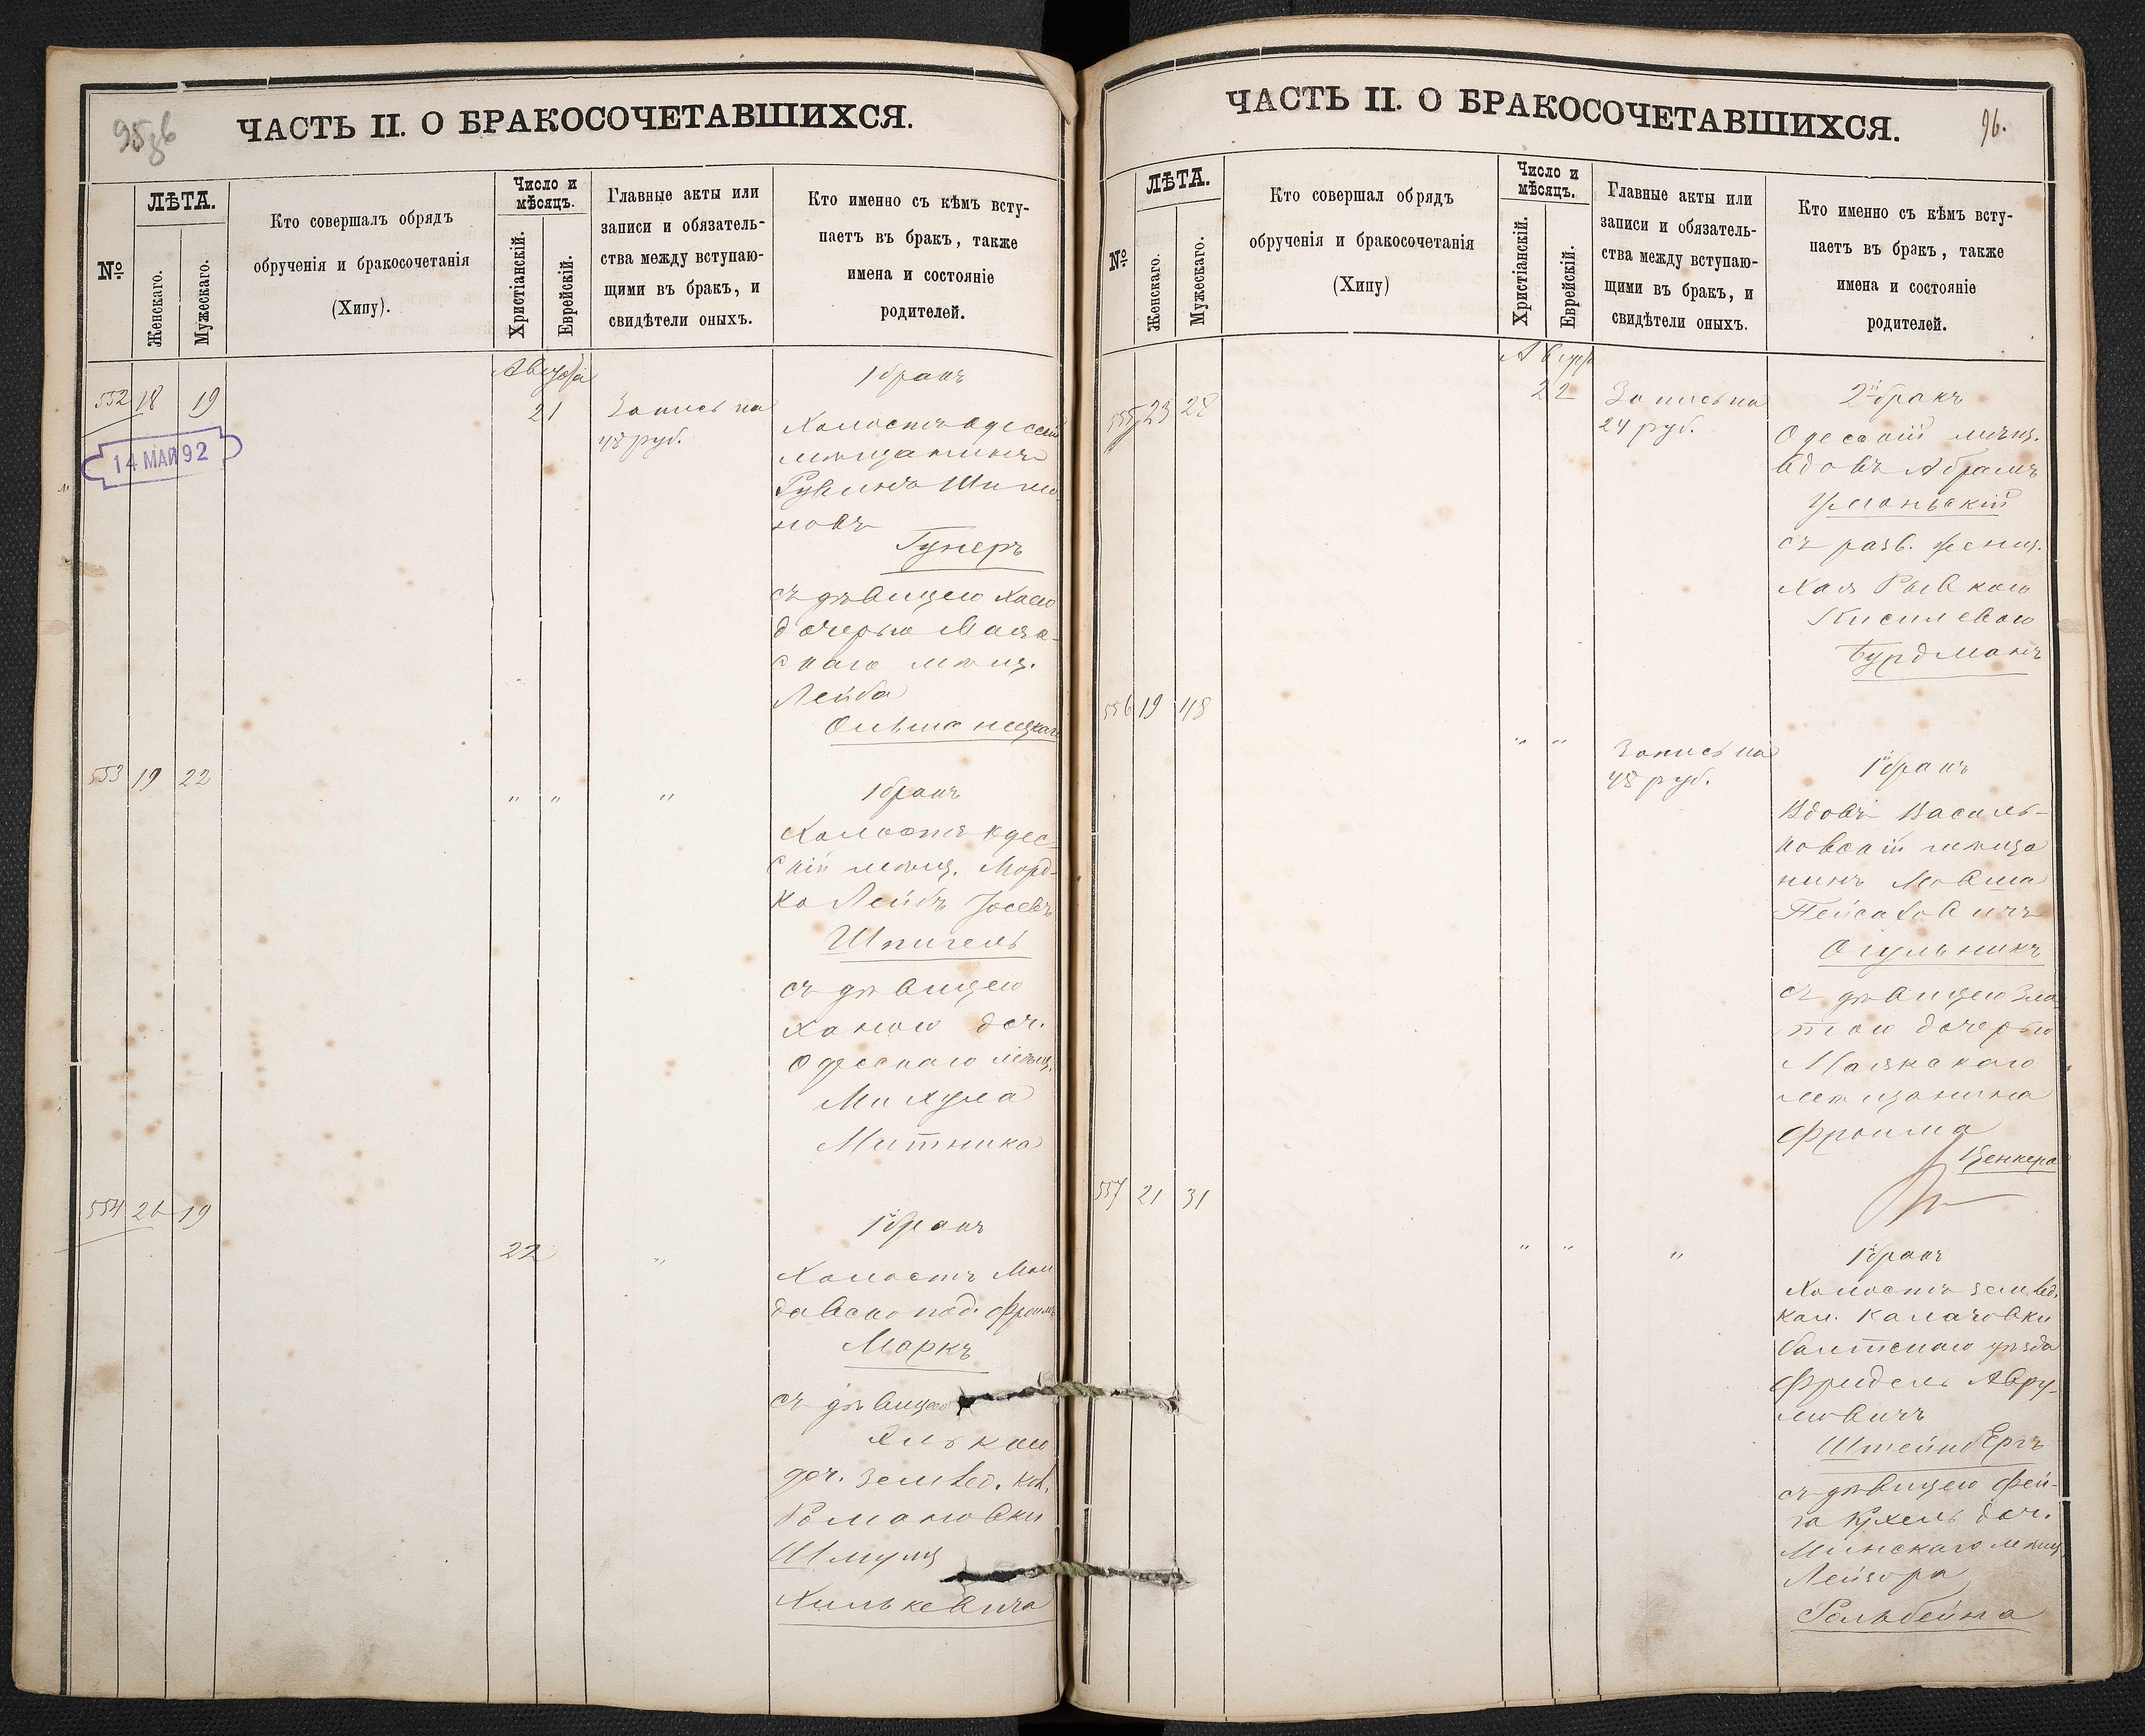 95об
ЧАСТЬ II. О БРАКОСОЧЕТАВШИХСЯ.
№
ЛѢТА.
Женскаго.
Мужескаго.
Кто совершалъ обрядъ
обрученія и бракосочетанія
(Хипу).
Число и
мѣсяцъ.
Христіанскій.
Еврейскій.
Главные акты или
записи и обязатель-
ства между вступаю-
щими въ бракъ, и
свидѣтели оныхъ.
Кто именно съ кѣмъ всту-
паетъ въ бракъ, также
имена и состояніе
родителей.
Августа
552 18 19
21
Запись на
48 руб.
1 бракъ
Холостъ Одесскій
мѣщанинъ
Рувинъ Шимо
новъ
Гунеръ
съ дѣвицею Хаею
дочерью Маяк-
скаго мѣщ.
Лейба
Ольшанецкаго
14 МАЙ 92
553 19 22
" " "
1 бракъ
Холостъ Одес-
скій мѣщ. Морд-
ко Лейбъ Іосевъ
Шпигель
съ дѣвицею
Ханою доч.
Одесскаго мѣщ.
Михула
Митника
554 21 19
22 "
1й бракъ
Холостъ Мол
давско под. Фроимъ
Маркъ
съ дѣвицею
Элькою
доч. землед. кол.
Романовки
Шмуля
Хилькевича
96.
ЧАСТЬ II. О БРАКОСОЧЕТАВШИХСЯ.
№
ЛѢТА.
Женскаго.
Мужескаго.
Кто совершал обрядъ
обрученія и бракосочетанія
(Хипу)
Число и
мѣсяцъ.
Христіанскій.
Еврейскій.
Главные акты или
записи и обязатель-
ства между вступаю-
щими въ бракъ, и
свидѣтели оныхъ.
Кто именно съ кѣмъ всту-
паетъ въ бракъ, также
имена и состояніе
родителей.
Август
555 23 28
22
Запись на
24 руб.
2й бракъ
Одесскій мѣщ.
вдовъ Абрамъ
Уманьскій
съ разв. женщ.
Хая Рывкою
Кисилевою
Бурдманъ
556 19 48
" "
Запись на
48 руб.
1й бракъ
Вдовъ Василь-
ковскій мѣща
нинъ Мовша
Пейсаховичъ
Огульникъ
съ дѣвицею Зла
тою дочерью
Маякскаго
мѣщанина
Фроима
Ценкера
557 21 31
" " "
1й бракъ
Холостъ землед.
кол. Калачовки
балтскаго уѣзда
Фридель Авру-
мовичъ
Штейнбергъ
съ дѣвицею Фей-
га Рухель доч.
Минскаго мѣщ.
Лейзора
Гольбейна